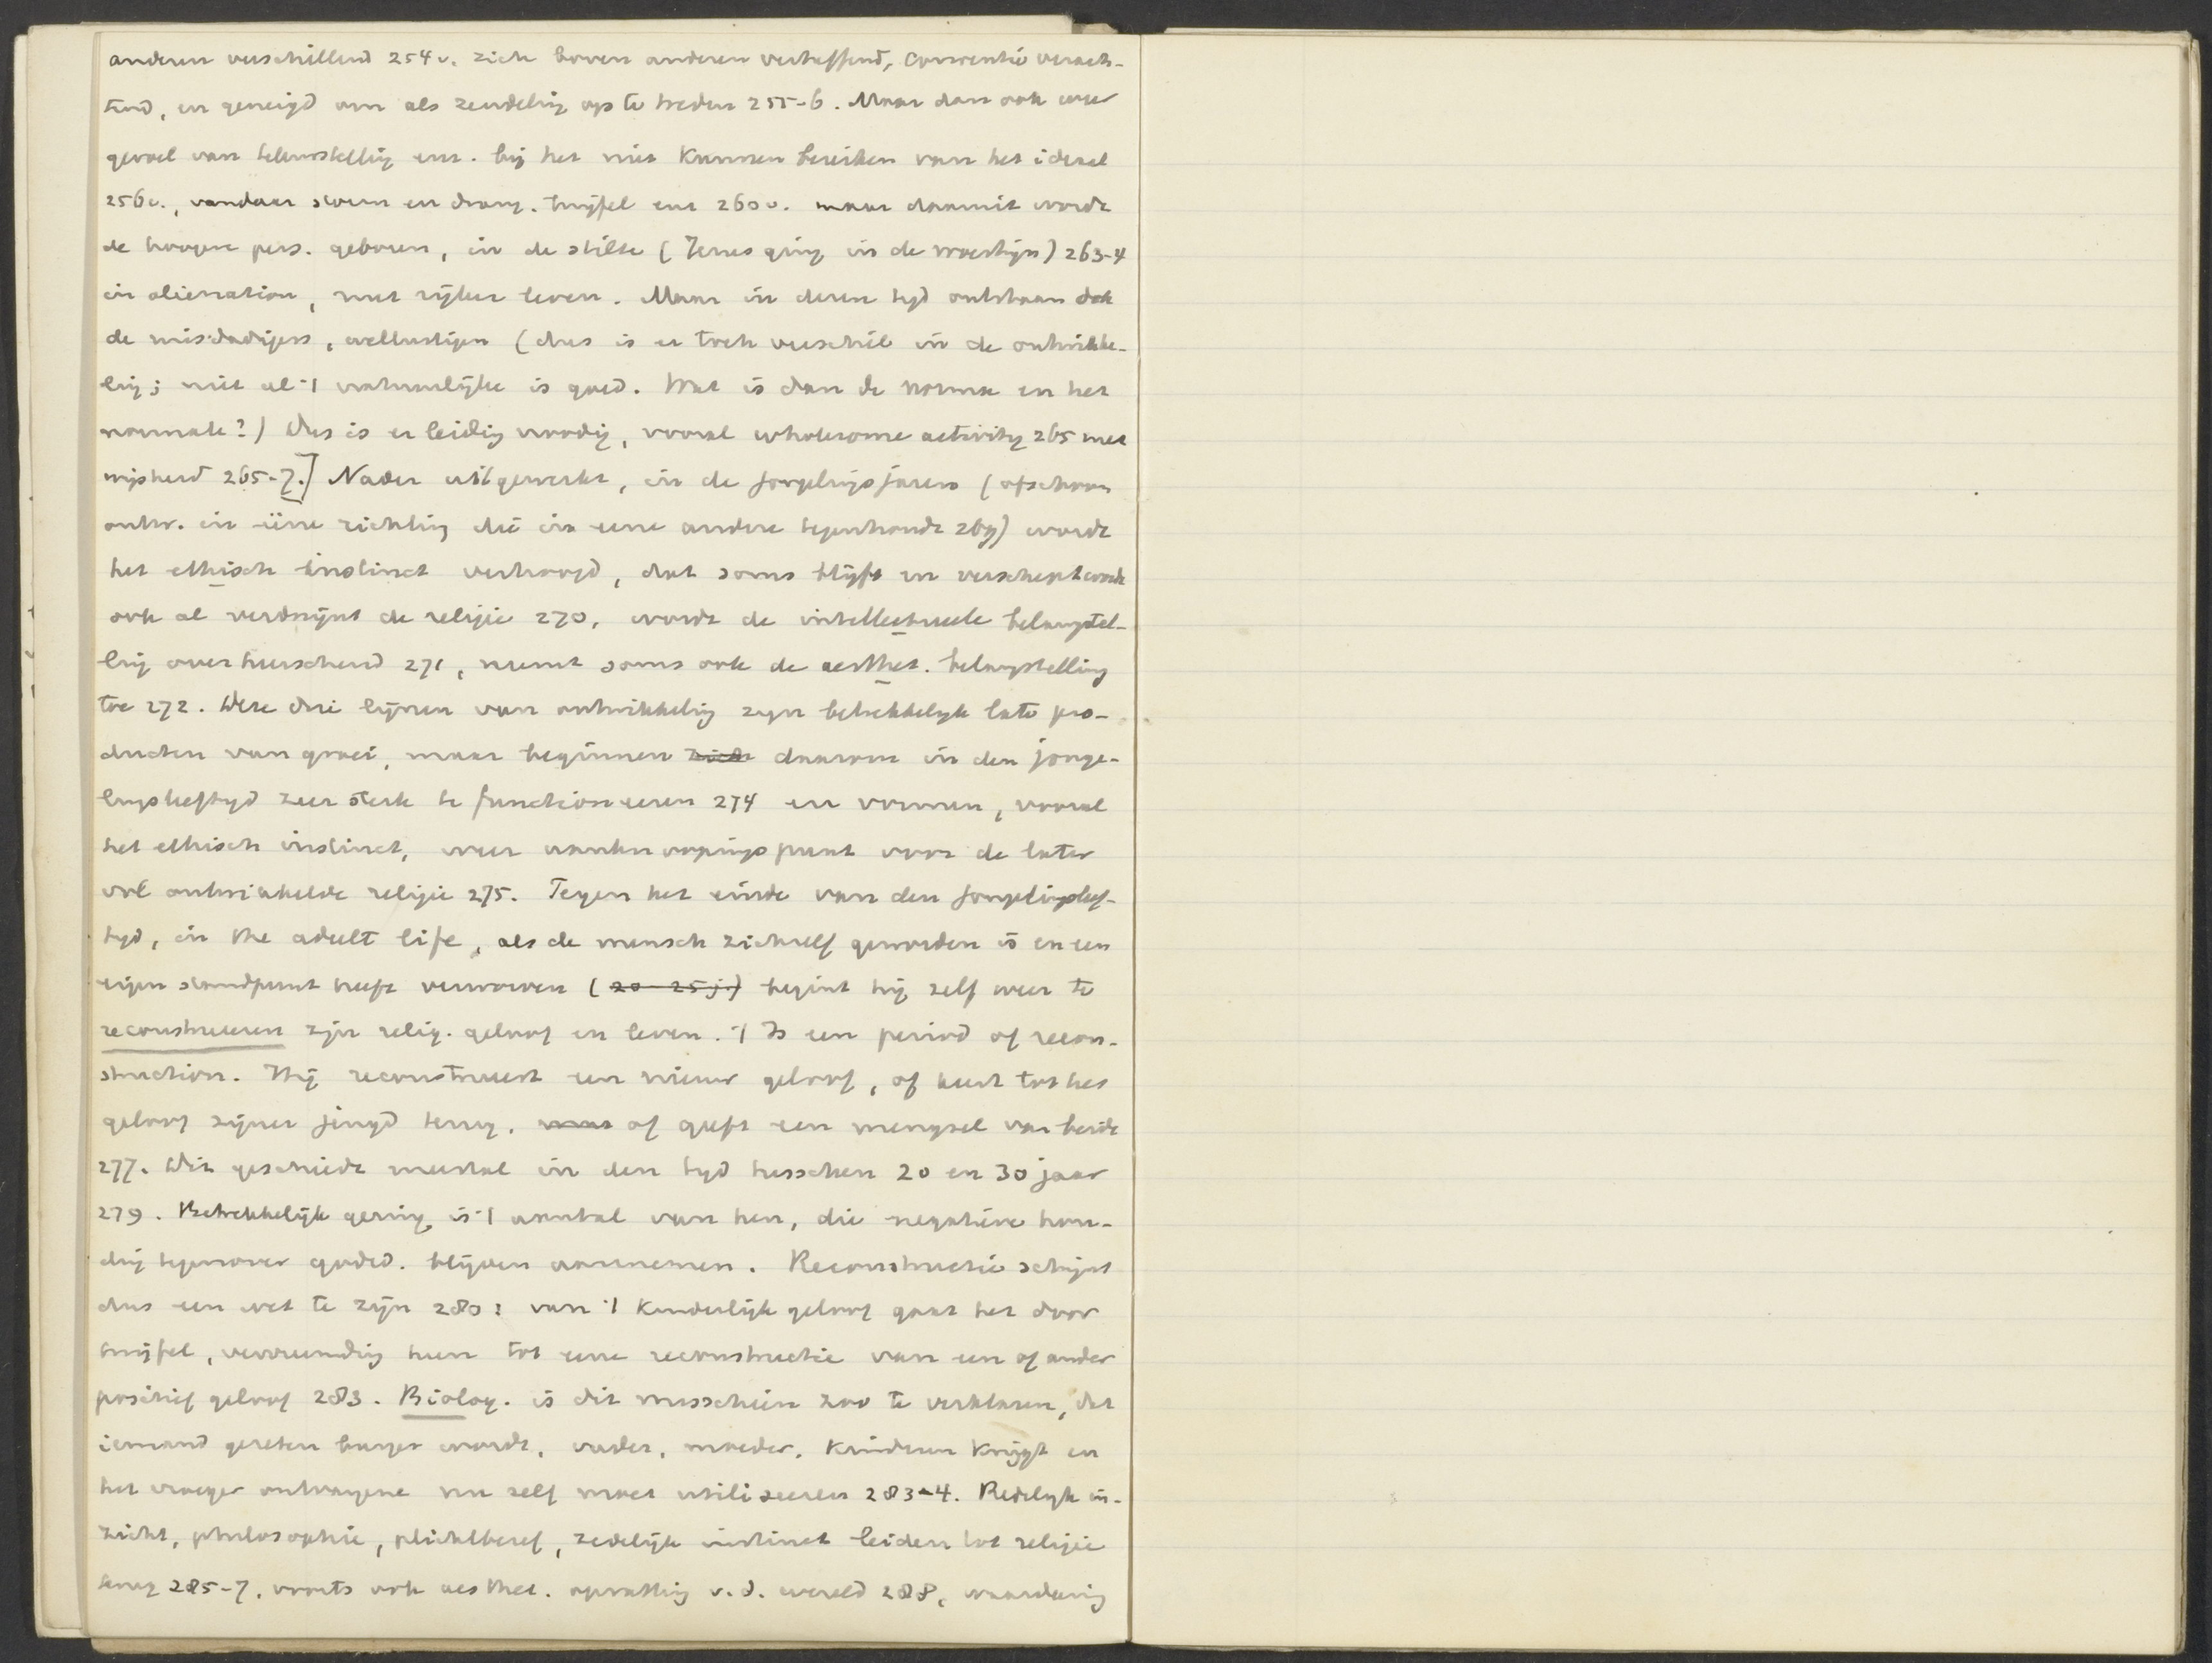 anderen verschillend 254v. zich boven anderen verheffend, conventie verach-
tend, en geneigd om als zendeling op te treden 255-6. Maar dan ook weer
gevoel van teleurstelling enz. bij het niet kunnen bereiken van het ideaal
256v., vandaar storm en drang. twijfel enz 260v. maar daaruit wordt
de hoogere pers. geboren, in de stilte (Jezus ging in de woestijn) 263-4
in alienation, met rijker leven. Maar in dezen tijd ontstaan ook
de misdadigers, wellustigen (dus is er toch verschil in de ontwikke-
ling; niet al 't natuurlijke is goed. Wat is dan de norma en het
normale?) Dus is er leiding noodig, vooral wholesome activity 265 met
wijsheid 265-7.] Nader uitgewerkt, in de jongelingsjaren (ofschoon
ontw. in eene richting die in eene andere tegenhoudt 269) wordt
het ethisch instinct verhoogd, dat soms blijft en verscherpt wordt
ook al verdwijnt de religie 270, wordt de intellectueele belangstel-
ling overheerschend 271, neemt soms ook de aesthet. belangstelling
toe 272. Deze drie lijnen van ontwikkeling zijn betrekkelijk late pro-
ducten van groei, maar beginnen zich daarom in den jonge-
lingsleeftijd zeer sterk te functioneeren 274 en vormen, vooral
het ethisch instinct, weer aanknoopingspunt voor de later
vol ontwikkelde religie 275. Tegen het einde van den jongelingsleef-
tijd, in the adult life, als de mensch zichzelf geworden is en een
eigen standpunt heeft verworven (20-25 j.) begint hij zelf weer te
reconstrueeren zijn relig. geloof en leven. 't Is een period of recon-
struction. Hij reconstrueert een nieuw geloof, of keert tot het
geloof zijner jeugd terug, maar of geeft een mengsel van beide
277. Dit geschiedt meestal in den tijd tusschen 20 en 30 jaar
279. Betrekkelijk gering is 't aantal van hen, die negatieve hou-
ding tegenover godsd. blijven aannemen. Reconstructie schijnt
dus een wet te zijn 280: van 't kinderlijk geloof gaat het door
twijfel, vervreemding heen tot eene reconstructie van een of ander
positief geloof 283. Biolog. is dit misschien zoo te verklaren, dat
iemand gezeten burger wordt, vader, moeder, kinderen krijgt en
het vroeger ontvangene nu zelf moet utiliseeren 283-4. Redelijk in-
zicht, philosophie, plichtbesef, zedelijk instinct leiden tot religie
terug 285-7, voorts ook aesthet. opvatting v.d. wereld 288, waardering